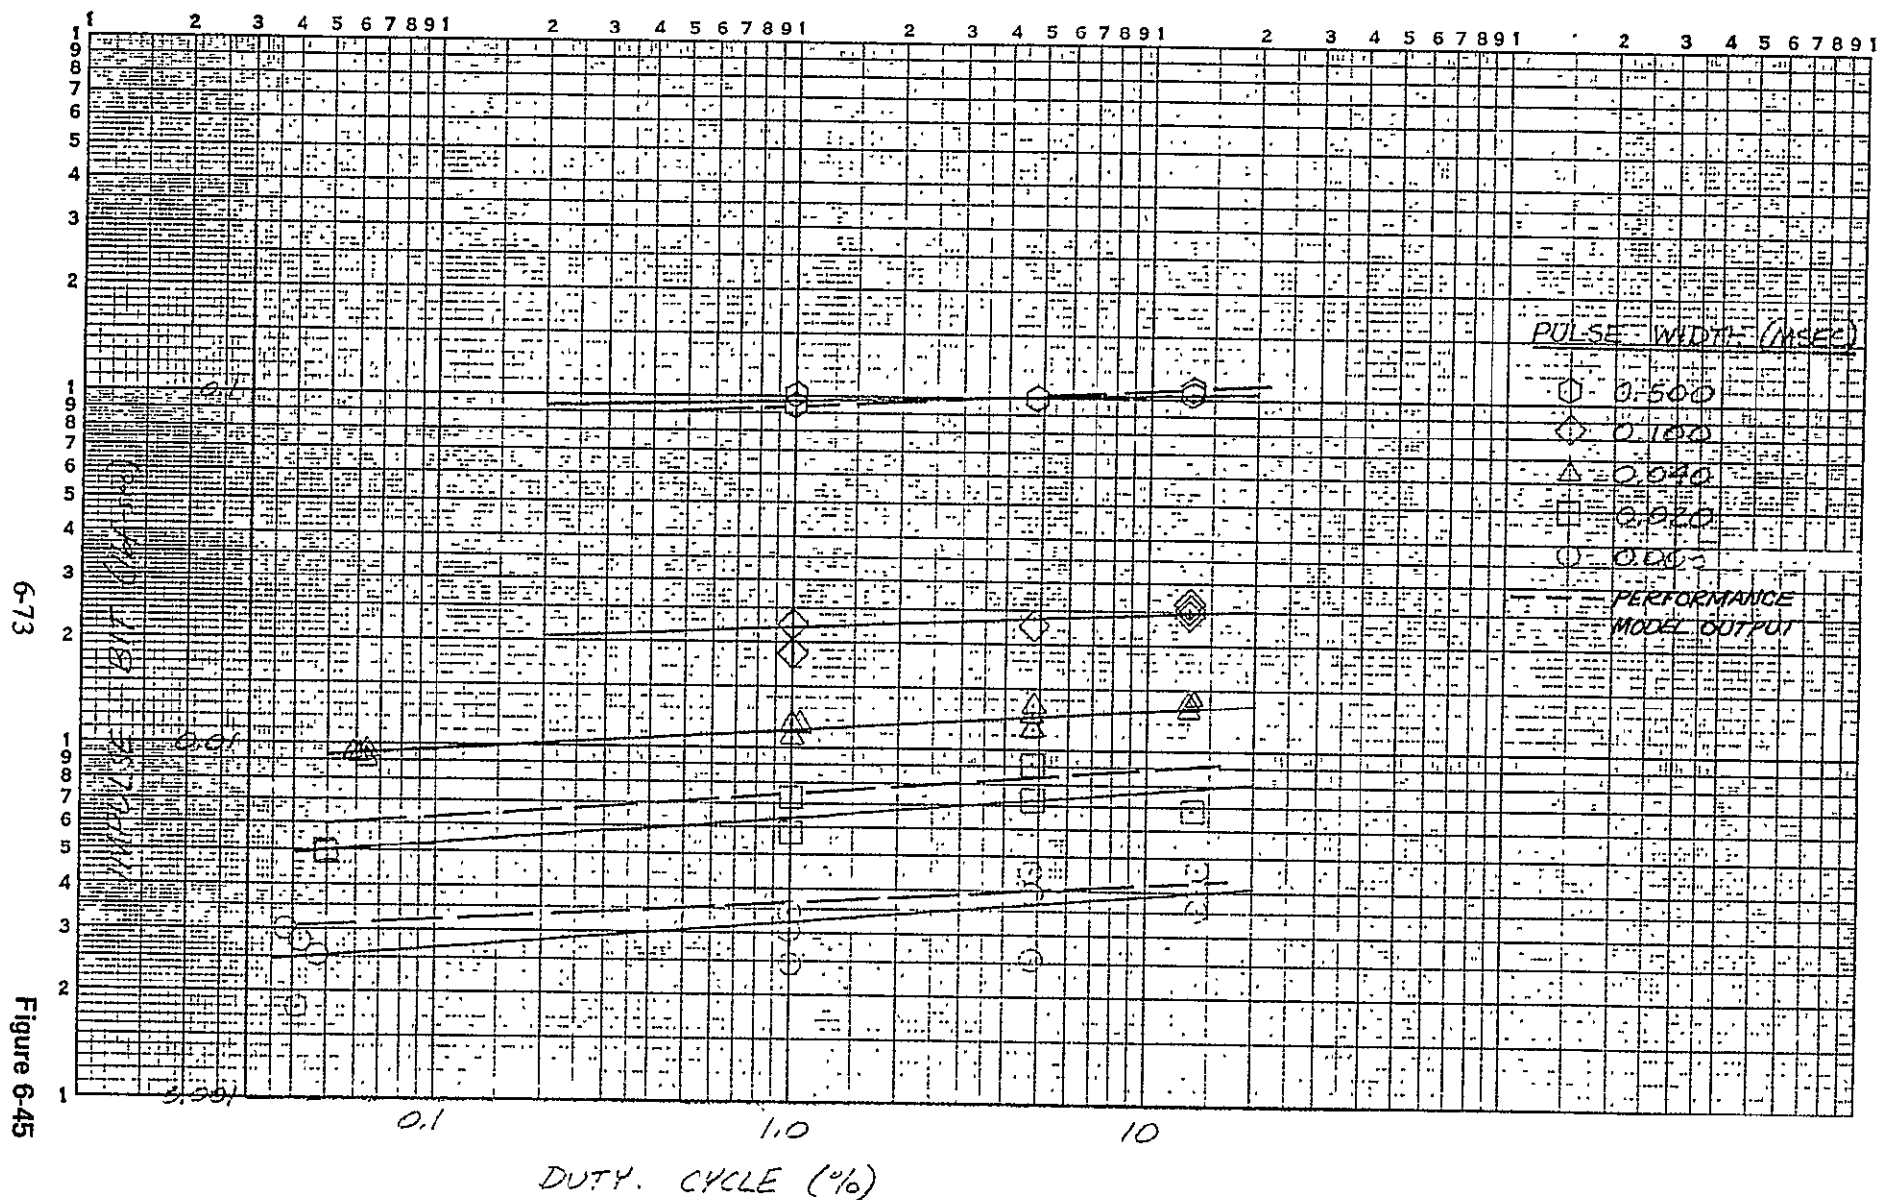 1 2 3 4 5 6 7 8 9 1 2 3 4 5 6 7 8 9 1 2 3 4 5 6 7 8 9 1 2 3 4 5 6 7 8 9 1 2 3 4 5 6 7 8 9 1
1
9
8
7
6
5
4
3
2
1
9
8
7
6
5
4
3
2
1
9
8
7
6
5
4
3
2
1
0.1
0.01
IMPULSE - BIT
PULSE WIDTH (MSEC)
0.500
0.100
0.040
0.020
PERFORMANCE
MODEL OUTPUT
0.1 1.0 10
DUTY. CYCLE (%)
6-73
Figure 6-45